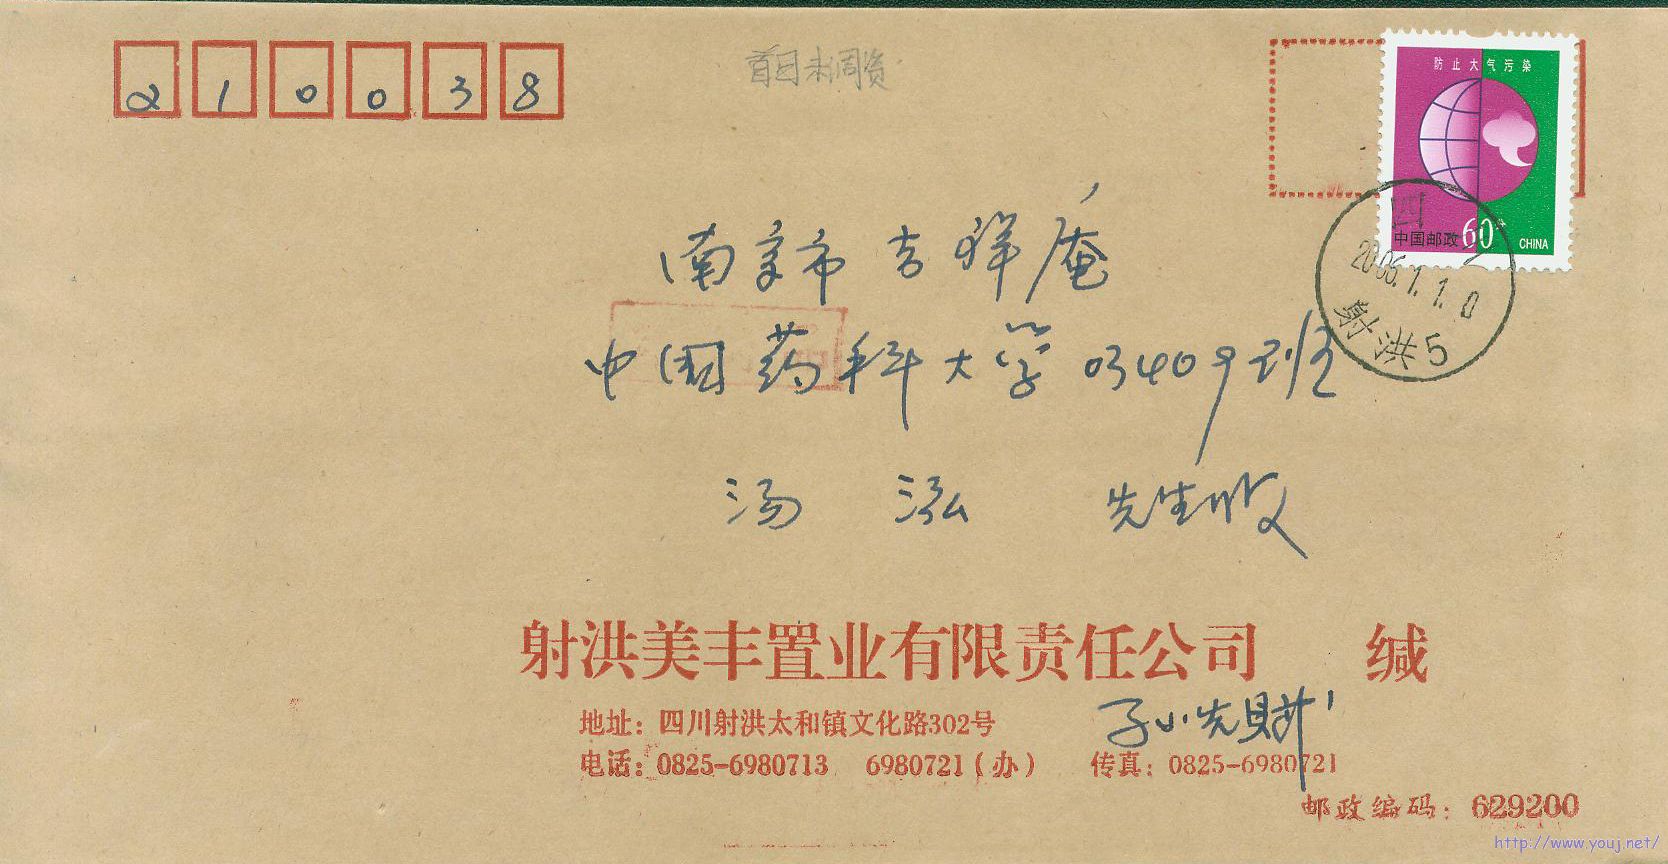 210038
首日未调资
防止大气污染
中国邮政 60分
CHINA
四川
2005.1.1.0
射洪5
南京市吉祥庵
中国药科大学03409班
汤泓 先生收
射洪美丰置业有限责任公司 缄
地址：四川射洪太和镇文化路302号
电话：0825-6980713 6980721(办) 传真：0825-6980721
邮政编码：629200
http://www.youj.net/